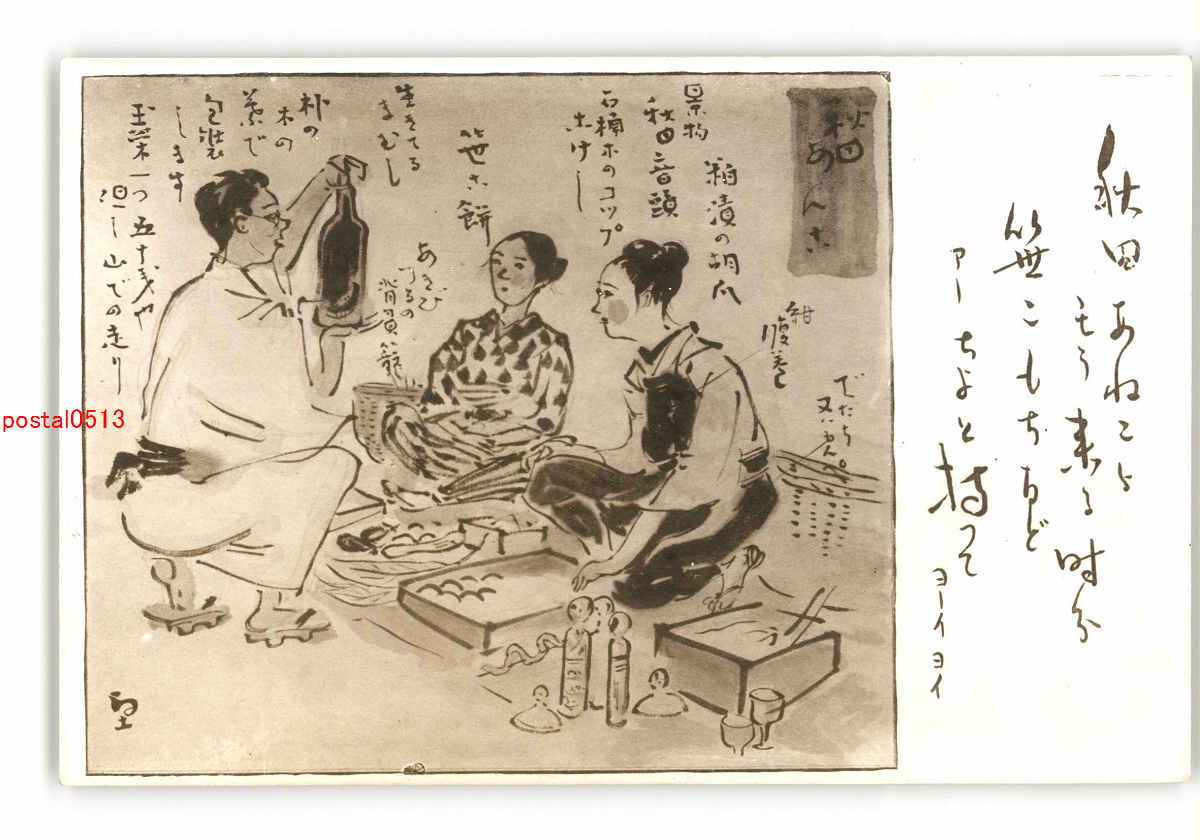 秋田あねこよ
もう来る時分
笹こもちなど
アーちよと持つて
ヨーイヨイ
秋田
あんこ
景物
粕漬の胡瓜
秋田音頭
石楠木のコップ
こけし
笹こ餅
生きてる
まむし
朴の
木の
葉で
包装
します
五十銭也
山での走り
あけび
づるの
背負籠
紺
腹巻
でたち
postal0513